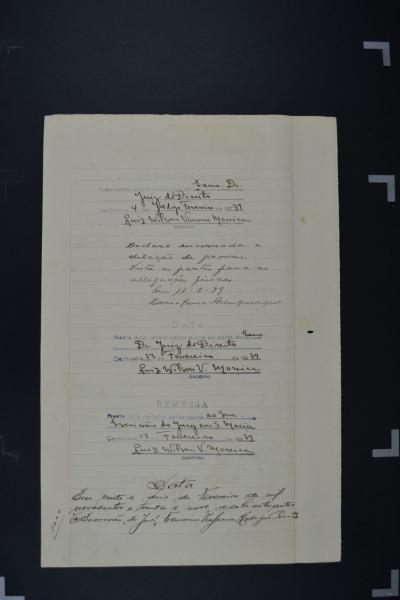 CONCLUSÃO
Faço estes autos conclusos ao Exmo. Dr.
Juiz de Direito
Cachoeira, 4 de Fevereiro de 1939
Luiz Wilson V. Moreira
Escrivão
Declaro encerrada a
dilação de provas.
Vista as partes para as
allegações finaes
Em 11-2-39
Albuquerque
DATA
Nesta data recebi estes autos da parte do Exmo.
Dr. Juiz de Direito
Cachoeira, 13 Fevereiro de 1939
Luiz Wilson V. Moreira
Escrivão
REMESSA
Nesta data remeto estes autos ao Snr.
Escrivão do Jury em S. Maria
Cachoeira, 13 Fevereiro de 1939
Luiz Wilson V. Moreira
Escrivão
Data
Em vinte e dois de Fevereiro de mil
novecentos e trinta e nove, recebi estes autos
O Escrivão do Juri,